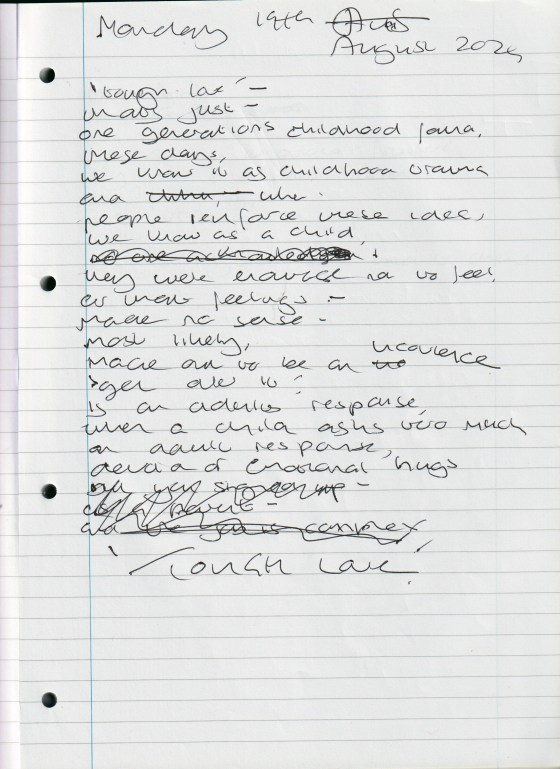 Monday 19th
August 2024
'tough love' –
that's just –
one generations childhood pain,
these days,
we know it as childhood trauma
and
people reinforce these ideas,
we know as a child,
they were not to feel
or
made no sense –
most likely,
made out to be an
'get over it'
is an adults response,
when a child asks too much
an adult response,
devoid of emotional hugs
'Tough Love'